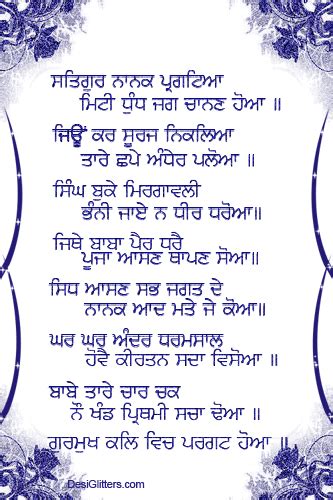 ਸਤਿਗੁਰ ਨਾਨਕ ਪ੍ਰਗਟਿਆ
ਮਿਟੀ ਧੁੰਧ ਜਗ ਚਾਨਣ ਹੋਆ ॥
ਜਿਊਂ ਕਰ ਸੂਰਜ ਨਿਕਲਿਆ
ਤਾਰੇ ਛਪੇ ਅੰਧੇਰ ਪਲੋਆ ॥
ਸਿੰਘ ਬੁਕੇ ਮਿਰਗਾਵਲੀ
ਭੰਨੀ ਜਾਏ ਨ ਧੀਰ ਧਰੋਆ॥
ਜਿਥੇ ਬਾਬਾ ਪੈਰ ਧਰੈ
ਪੂਜਾ ਆਸਣ ਥਾਪਣ ਸੋਆ॥
ਸਿਧ ਆਸਣ ਸਭ ਜਗਤ ਦੇ
ਨਾਨਕ ਆਦ ਮਤੇ ਜੇ ਕੋਆ॥
ਘਰ ਘਰ ਅੰਦਰ ਧਰਮਸਾਲ
ਹੋਵੈ ਕੀਰਤਨ ਸਦਾ ਵਿਸੋਆ ॥
ਬਾਬੇ ਤਾਰੇ ਚਾਰ ਚਕ
ਨੌ ਖੰਡ ਪ੍ਰਿਥਮੀ ਸਚਾ ਢੋਆ ॥
ਗੁਰਮੁਖ ਕਲਿ ਵਿਚ ਪਰਗਟ ਹੋਆ ॥
DesiGlitters.com